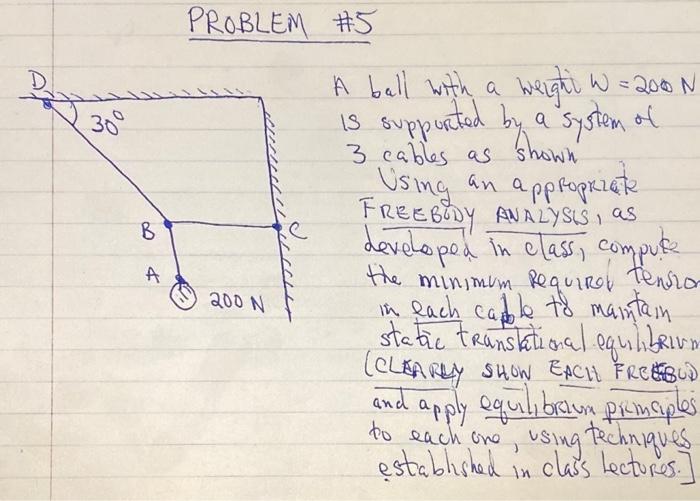 PROBLEM #5
D
30°
B
C
A
200 N
A ball with a weight W = 200 N
is supported by a system of
3 cables as shown
Using an appropriate
FREEBODY ANALYSIS, as
developed in class, compute
the minimum required tension
in each cable to maintain
static translational equilibrium
(CLEARLY SHOW EACH FREEBOD
and apply equilibrium principles
to each one, using techniques
established in class lectures.]